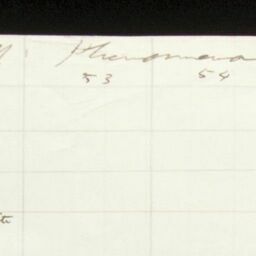 Phenomena
53 54